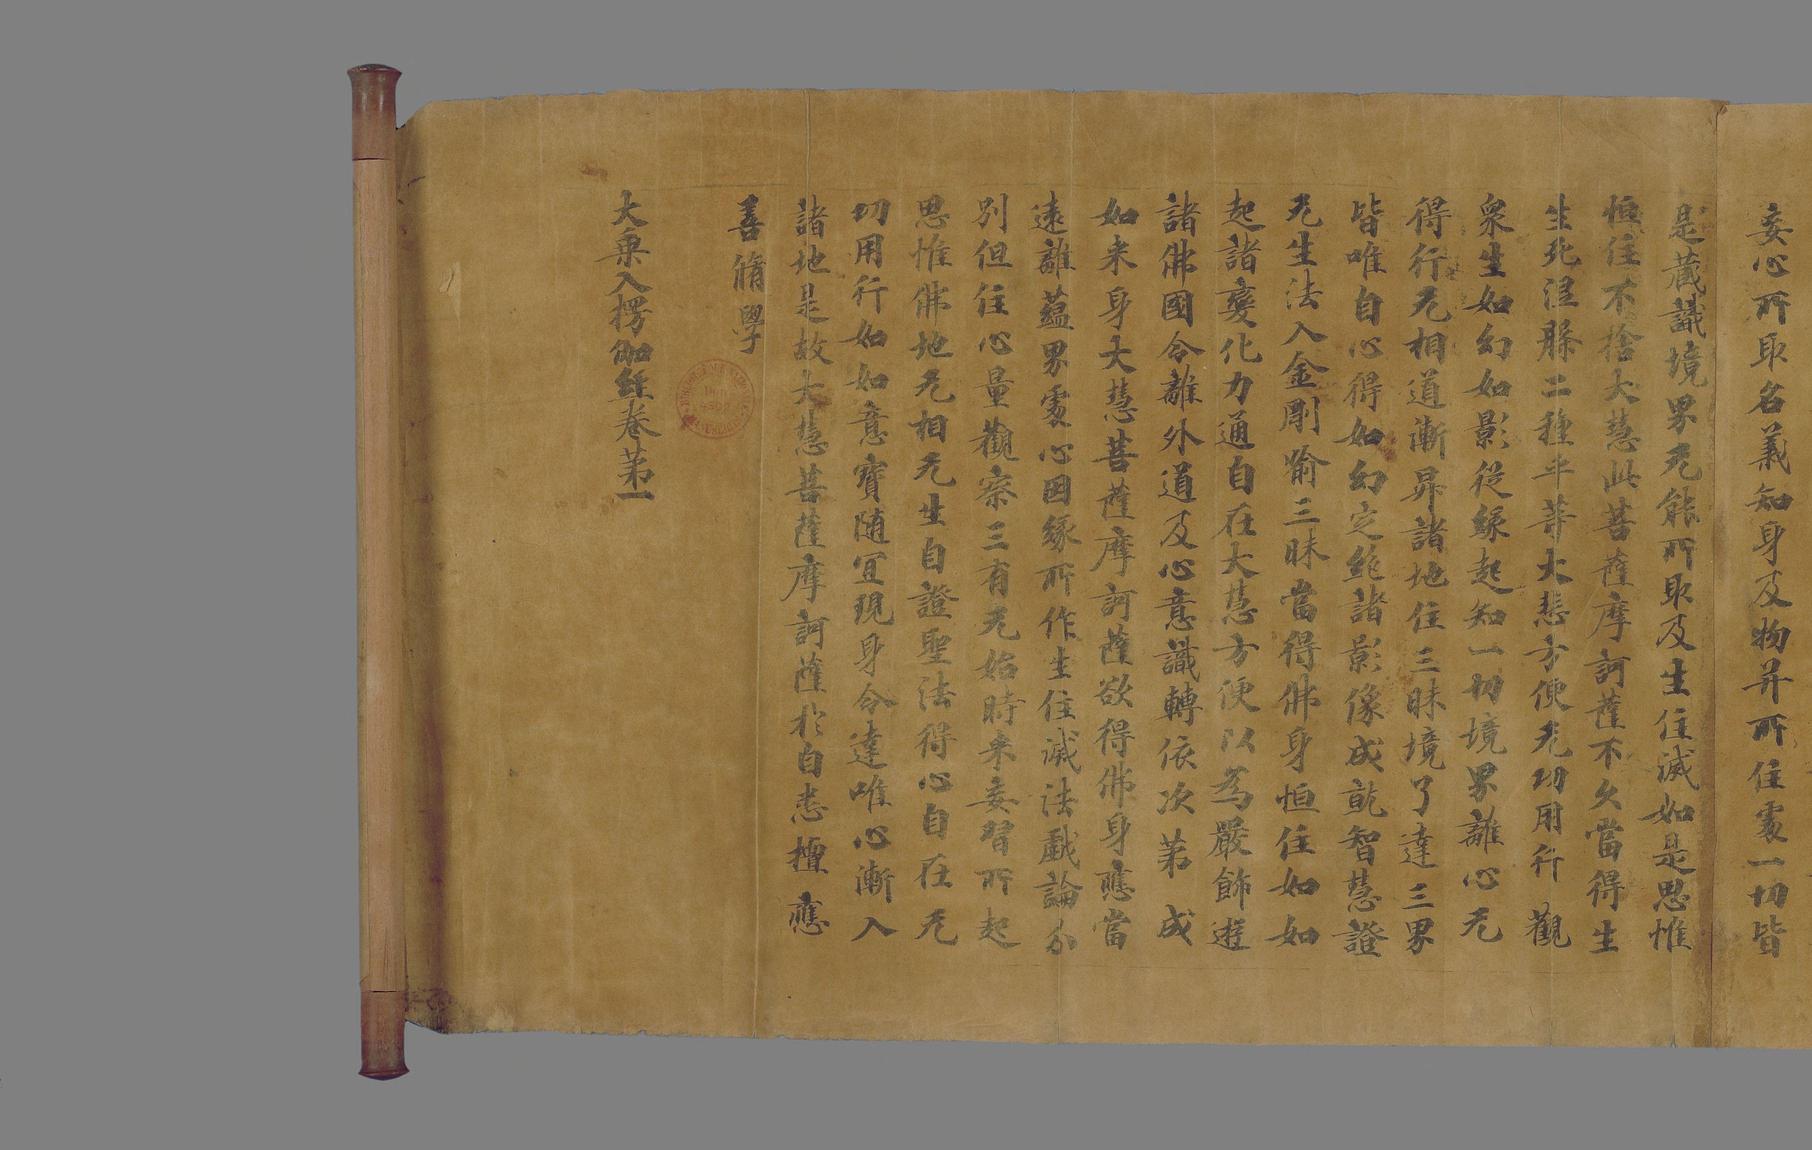 妄心所取名義知身及物并所住處一切皆
是藏識境界无能所取及生住滅如是思惟
恒住不捨大慧此菩薩摩訶薩不久當得生
生死涅槃二種平等大悲方便无功用行觀
衆生如幻如影從緣起知一切境界離心无
得行无相道漸昇諸地住三昧境了達三界
皆唯自心得如幻定絶諸影像成就智慧證
无生法入金剛喻三昧當得佛身恒住如如
起諸變化力通自在大慧方便以為嚴飾遊
諸佛國令離外道及心意識轉依次第成
如来身大慧菩薩摩訶薩欲得佛身應當
遠離蘊界處心因緣所作生住滅法戲論分
別但住心量觀察三有无始時来妄習所起
思惟佛地无相无生自證聖法得心自在无
功用行如如意寶随宜現身令達唯心漸入
諸地是故大慧菩薩摩訶薩於自悉檀應
善脩學
大乗入楞伽經卷第一